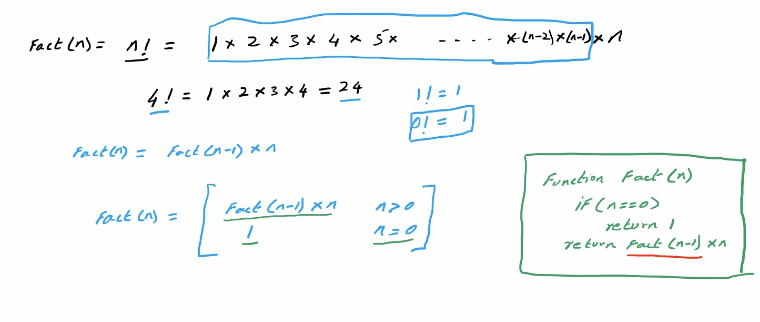 Fact(n) = n! = 1 × 2 × 3 × 4 × 5 × .... × (n-2) × (n-1) × n
4! = 1 × 2 × 3 × 4 = 24
1! = 1
0! = 1
Fact(n) = Fact(n-1) × n
Fact(n) = [ Fact(n-1) × n    n>0
1    n=0 ]
Function Fact(n)
if(n==0)
return 1
return Fact(n-1) × n